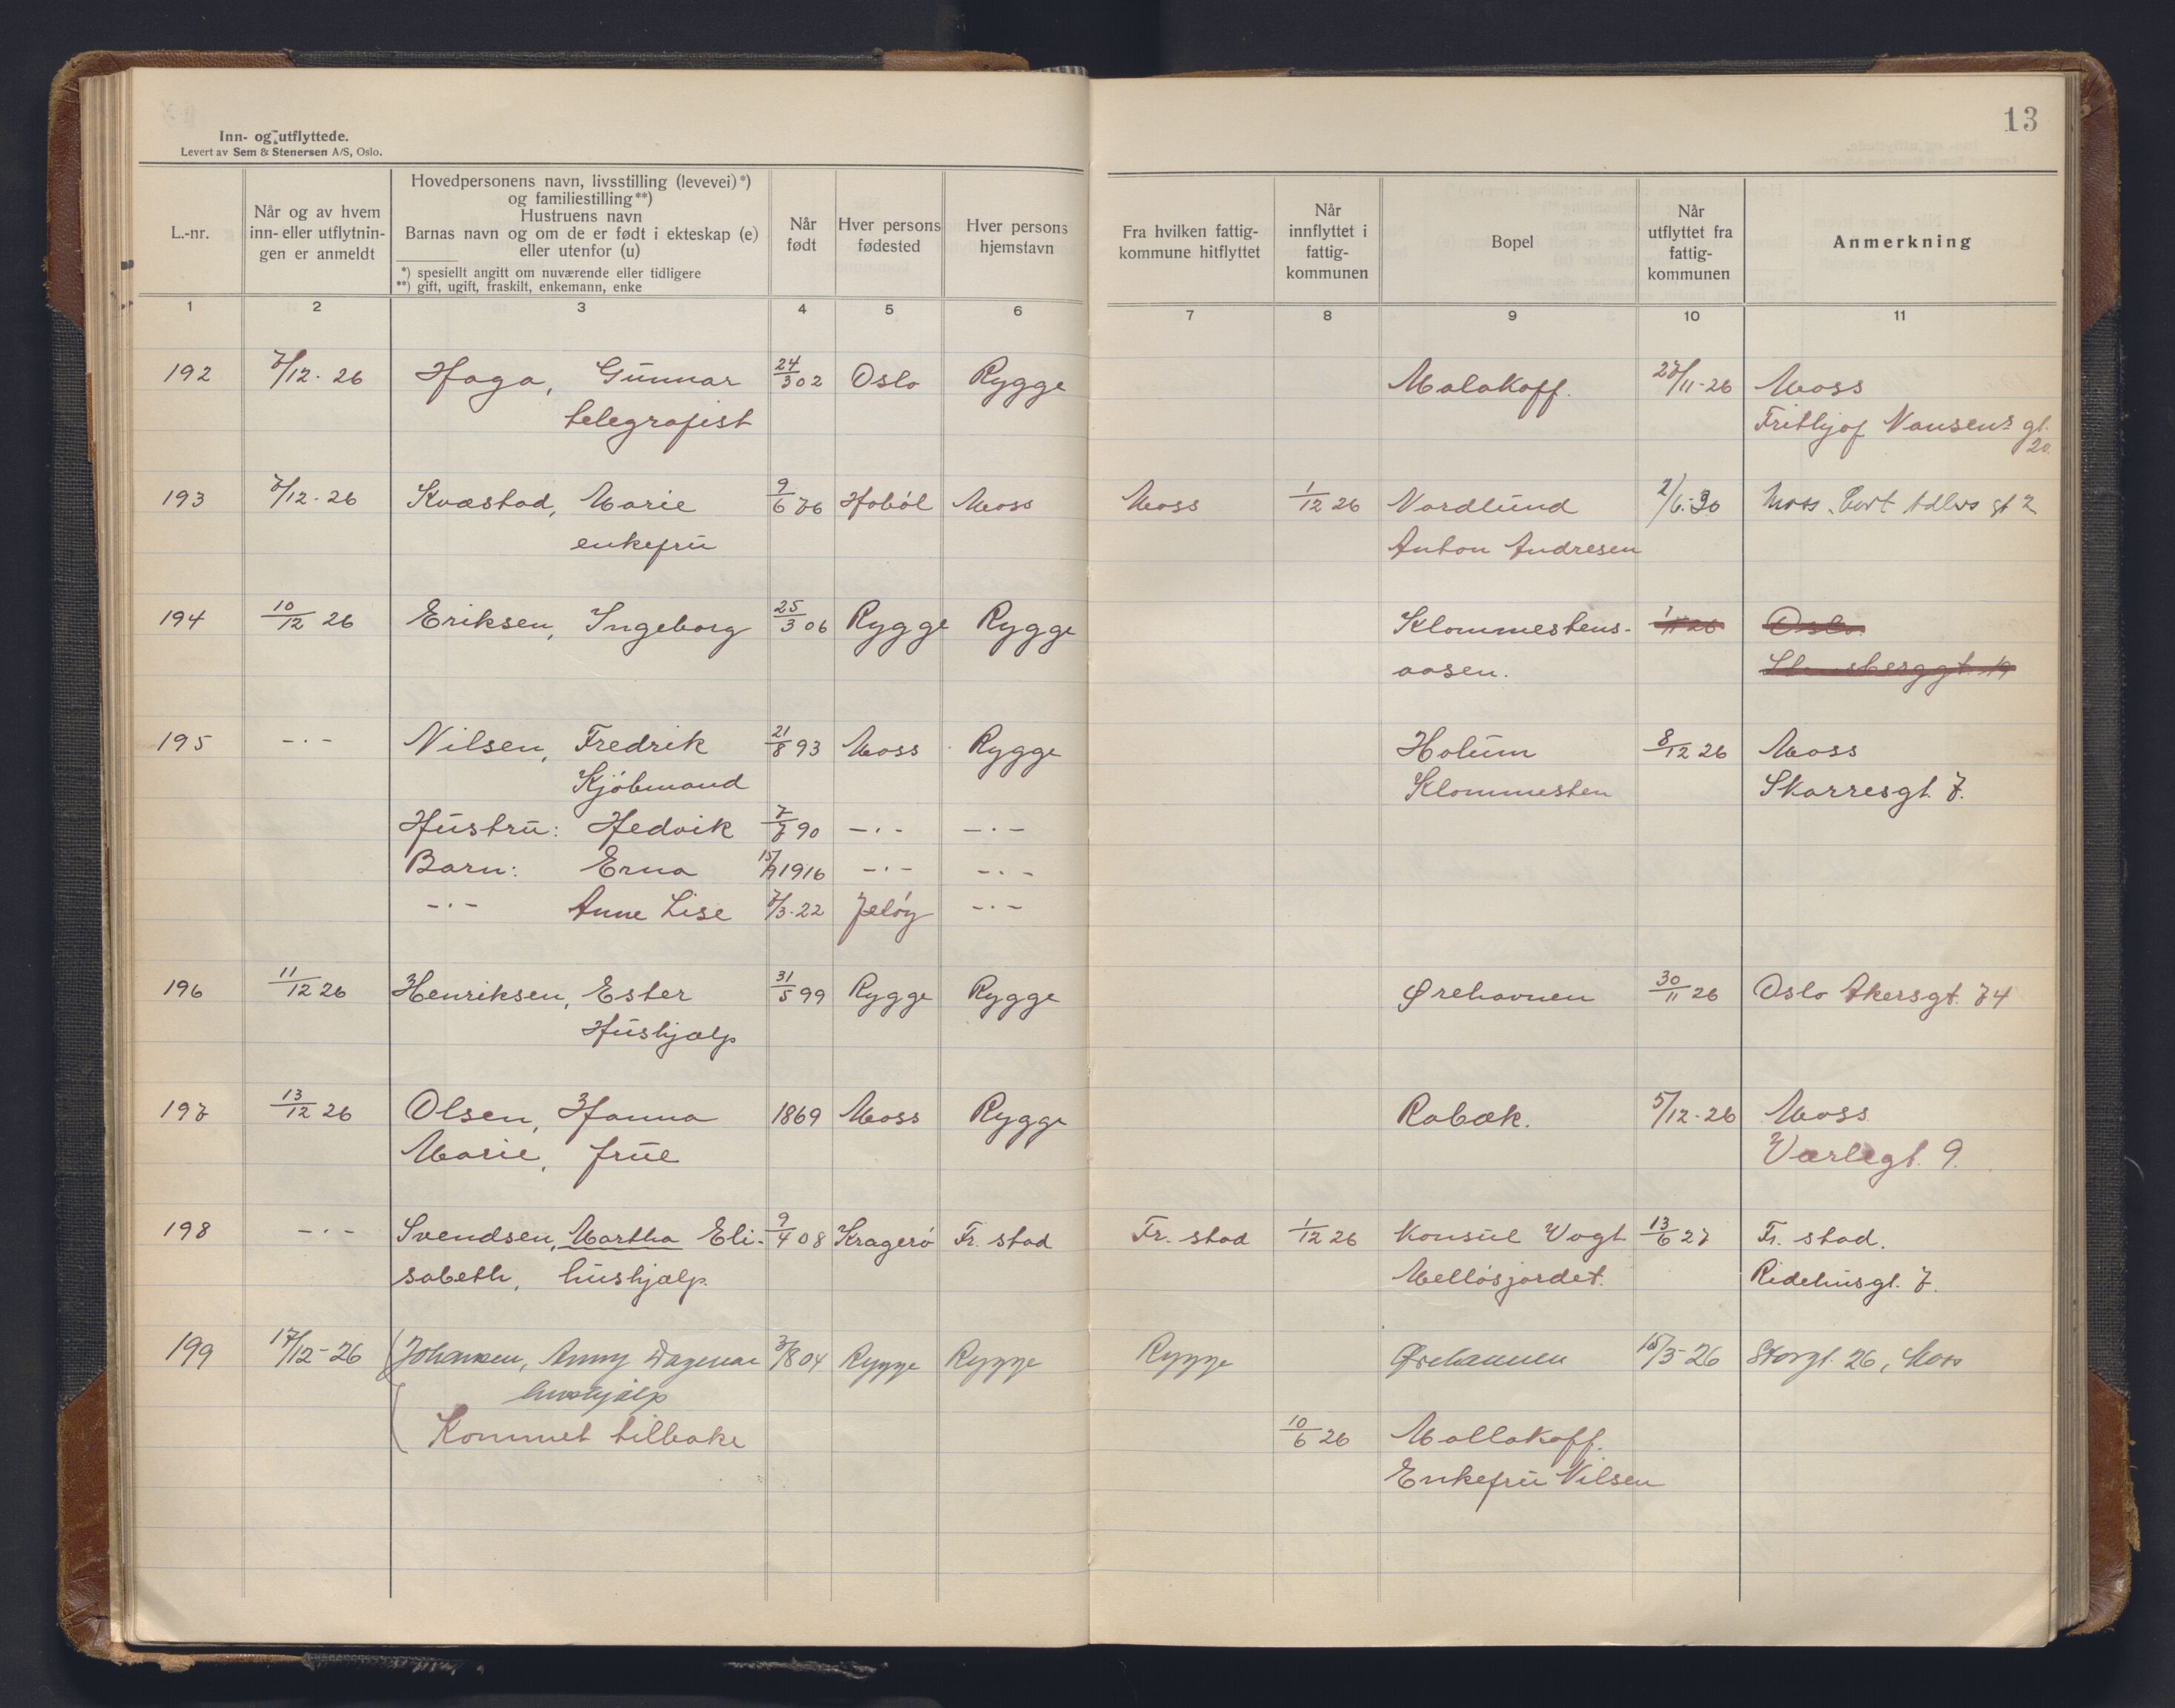 13
Inn- og utflyttede.
Levert av Sem & Stenersen A/S, Oslo.
L.-nr.
Når og av hvem
inn- eller utflytnin-
gen er anmeldt
Hovedpersonens navn, livsstilling (levevei)*)
og familiestilling**)
Hustruens navn
Barnas navn og om de er født i ekteskap (e)
eller utenfor (u)
*) spesiellt angitt om nuværende eller tidligere
**) gift, ugift, fraskilt, enkemann, enke
Når
født
Hver persons
fødested
Hver persons
hjemstavn
Fra hvilken fattig-
kommune hitflyttet
Når
innflyttet i
fattig-
kommunen
Bopel
Når
utflyttet fra
fattig-
kommunen
Anmerkning
1 2 3 4 5 6 7 8 9 10 11
192 7/12-26 Haga, Gunnar 24/3 02 Oslo Rygge Malakoff. 27/11-26 Moss
telegrafist Frithjof Nansens gt.
20.
193 7/12-26 Kvæstad, Marie 9/6 76 Hobøl Moss Moss 1/12 26 Nordlund 2/6-30 Moss. Cort Adlers gt 2
enkefru Anton Andresen
194 10/12 26 Eriksen, Ingeborg 25/3 06 Rygge Rygge Klommestens- 1/11 26 Oslo.
aasen. Stensberggt. 19
195 -·- Nilsen, Fredrik 21/8 93 Moss Rygge Holum 8/12 26 Moss
Kjøbmand Klommesten Skarresgt. 7.
Hustru: Hedvik 7/7 90 -·- -·-
Barn: Erna 1916 -·- -·-
-·- Anne Lise 7/3-22 Jeløy -·-
196 11/12 26 Henriksen, Ester 31/5 99 Rygge Rygge Ørehavnen 30/11 26 Oslo Akersgt. 74
Hushjælp
197 13/12 26 Olsen, Hanna 1869 Moss Rygge Rabæk. 5/12-26 Moss.
Marie, frue Værlegt. 9.
198 -·- Svendsen, Martha Eli- 9/4 08 Kragerø Fr. stad Fr. stad 1/12 26 Konsul Vogt 13/6 27 Fr. stad.
sabeth, hushjælp. Melløsjordet. Ridehusgt. 7.
199 17/12-26 Johansen, Anny Dagmar 3/8 04 Rygge Rygge Rygge Ørehavnen 15/3-26 Storgt. 26, Moss
hushjælp
Kommet tilbake 10/6 26 Mallakoff.
Enkefru Nilsen